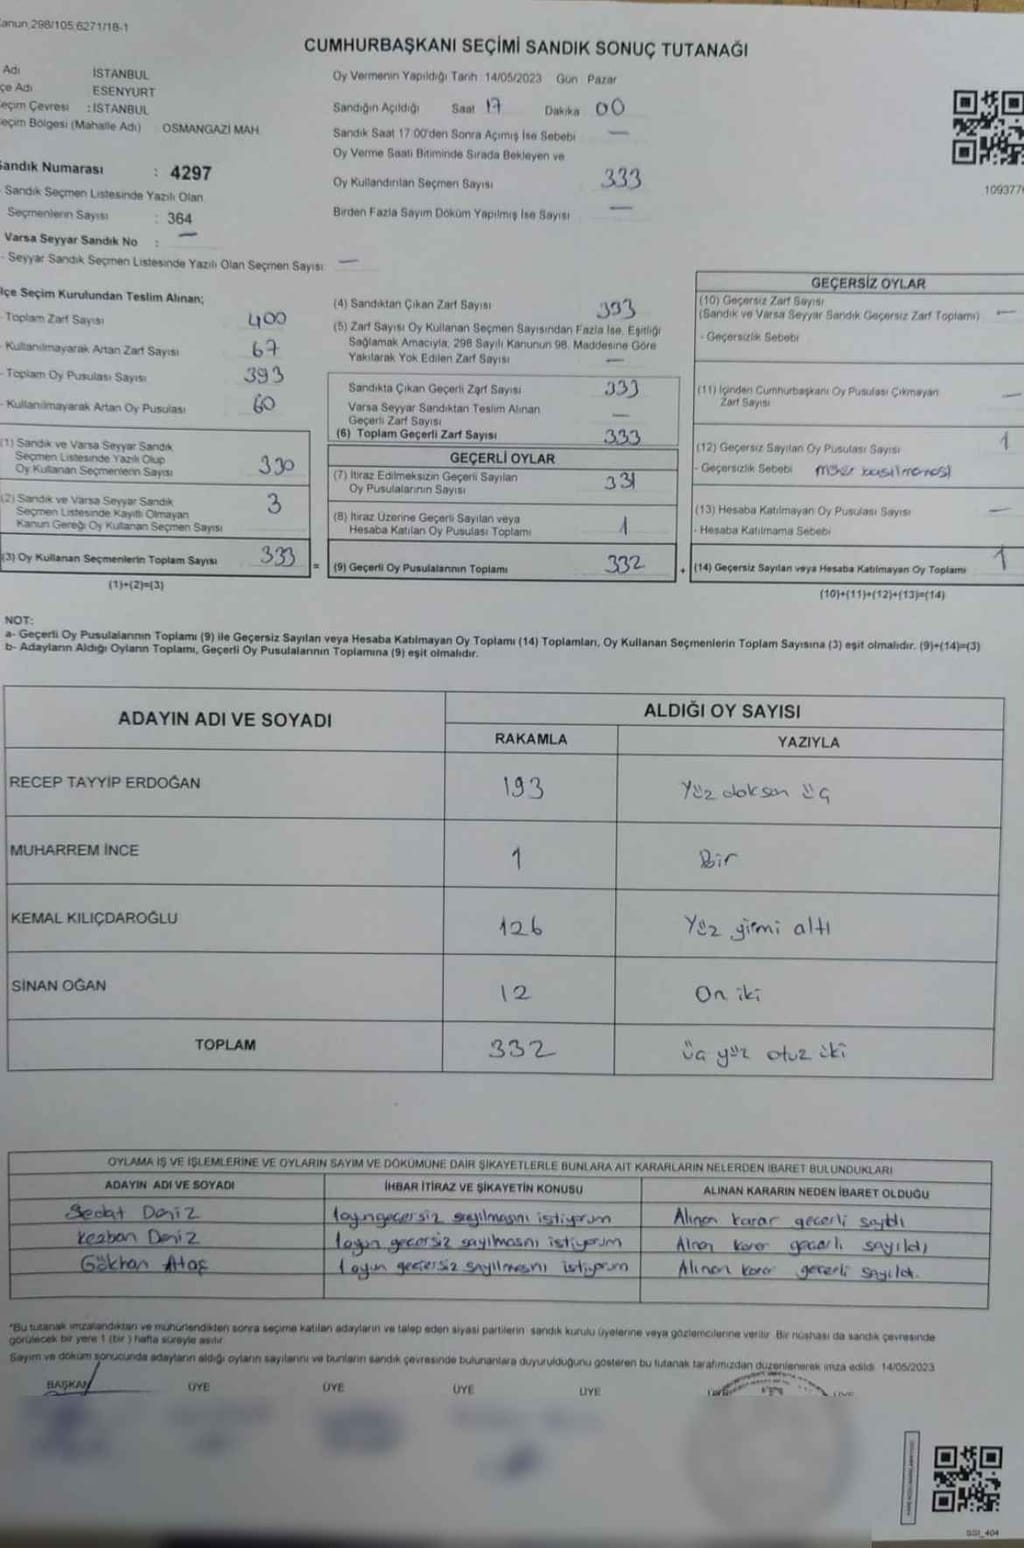 Kanun 298/105,6271/18-1
CUMHURBAŞKANI SEÇİMİ SANDIK SONUÇ TUTANAĞI
Adı İSTANBUL
çe Adı ESENYURT
eçim Çevresi : İSTANBUL
eçim Bölgesi (Mahalle Adı) OSMANGAZİ MAH.
Sandık Numarası : 4297
- Sandık Seçmen Listesinde Yazılı Olan
Seçmenlerin Sayısı : 364
Varsa Seyyar Sandık No : —
- Seyyar Sandık Seçmen Listesinde Yazılı Olan Seçmen Sayısı —
Oy Vermenin Yapıldığı Tarih 14/05/2023 Gün Pazar
Sandığın Açıldığı Saat 17 Dakika 00
Sandık Saat 17.00'den Sonra Açılmış İse Sebebi —
Oy Verme Saati Bitiminde Sırada Bekleyen ve
Oy Kullandırılan Seçmen Sayısı 333
Birden Fazla Sayım Döküm Yapılmış İse Sayısı —
109377
lçe Seçim Kurulundan Teslim Alınan;
- Toplam Zarf Sayısı 400
- Kullanılmayarak Artan Zarf Sayısı 67
- Toplam Oy Pusulası Sayısı 393
- Kullanılmayarak Artan Oy Pusulası 60
(1) Sandık ve Varsa Seyyar Sandık
Seçmen Listesinde Yazılı Olup
Oy Kullanan Seçmenlerin Sayısı 330
(2) Sandık ve Varsa Seyyar Sandık
Seçmen Listesinde Kayıtlı Olmayan
Kanun Gereği Oy Kullanan Seçmen Sayısı 3
(3) Oy Kullanan Seçmenlerin Toplam Sayısı 333
(1)+(2)=(3)
(4) Sandıktan Çıkan Zarf Sayısı 333
(5) Zarf Sayısı Oy Kullanan Seçmen Sayısından Fazla İse, Eşitliği
Sağlamak Amacıyla, 298 Sayılı Kanunun 98. Maddesine Göre
Yakılarak Yok Edilen Zarf Sayısı —
Sandıkta Çıkan Geçerli Zarf Sayısı 333
Varsa Seyyar Sandıktan Teslim Alınan
Geçerli Zarf Sayısı —
(6) Toplam Geçerli Zarf Sayısı 333
GEÇERLİ OYLAR
(7) İtiraz Edilmeksizin Geçerli Sayılan
Oy Pusulalarının Sayısı 331
(8) İtiraz Üzerine Geçerli Sayılan veya
Hesaba Katılan Oy Pusulası Toplamı 1
= (9) Geçerli Oy Pusulalarının Toplamı 332
GEÇERSİZ OYLAR
(10) Geçersiz Zarf Sayısı
(Sandık ve Varsa Seyyar Sandık Geçersiz Zarf Toplamı) —
- Geçersizlik Sebebi
(11) İçinden Cumhurbaşkanı Oy Pusulası Çıkmayan
Zarf Sayısı —
(12) Geçersiz Sayılan Oy Pusulası Sayısı 1
- Geçersizlik Sebebi mühür basılmaması
(13) Hesaba Katılmayan Oy Pusulası Sayısı —
- Hesaba Katılmama Sebebi
+ (14) Geçersiz Sayılan veya Hesaba Katılmayan Oy Toplamı 1
(10)+(11)+(12)+(13)=(14)
NOT:
a- Geçerli Oy Pusulalarının Toplamı (9) ile Geçersiz Sayılan veya Hesaba Katılmayan Oy Toplamı (14) Toplamları, Oy Kullanan Seçmenlerin Toplam Sayısına (3) eşit olmalıdır. (9)+(14)=(3)
b- Adayların Aldığı Oyların Toplamı, Geçerli Oy Pusulalarının Toplamına (9) eşit olmalıdır.
ADAYIN ADI VE SOYADI ALDIĞI OY SAYISI
RAKAMLA YAZIYLA
RECEP TAYYİP ERDOĞAN 193 Yüz doksan üç
MUHARREM İNCE 1 Bir
KEMAL KILIÇDAROĞLU 126 Yüz yirmi altı
SİNAN OĞAN 12 On iki
TOPLAM 332 üç yüz otuz iki
OYLAMA İŞ VE İŞLEMLERİNE VE OYLARIN SAYIM VE DÖKÜMÜNE DAİR ŞİKAYETLERLE BUNLARA AİT KARARLARIN NELERDEN İBARET BULUNDUKLARI
ADAYIN ADI VE SOYADI İHBAR İTİRAZ VE ŞİKAYETİN KONUSU ALINAN KARARIN NEDEN İBARET OLDUĞU
Sedat Deniz 1 oyun geçersiz sayılmasını istiyorum Alınan karar geçerli sayıldı
Kezban Deniz 1 oyun geçersiz sayılmasını istiyorum Alınan karar geçerli sayıldı
Gökhan Ataş 1 oyun geçersiz sayılmasını istiyorum Alınan karar geçerli sayıldı.
*Bu tutanak imzalandıktan ve mühürlendikten sonra seçime katılan adayların ve talep eden siyasi partilerin sandık kurulu üyelerine veya gözlemcilerine verilir. Bir nüshası da sandık çevresinde
görülecek bir yere 1 (bir) hafta süreyle asılır.
Sayım ve döküm sonucunda adayların aldığı oyların sayılarını ve bunların sandık çevresinde bulunanlara duyurulduğunu gösteren bu tutanak tarafımızdan düzenlenerek imza edildi. 14/05/2023
BAŞKAN ÜYE ÜYE ÜYE ÜYE ÜYE
SSI_404